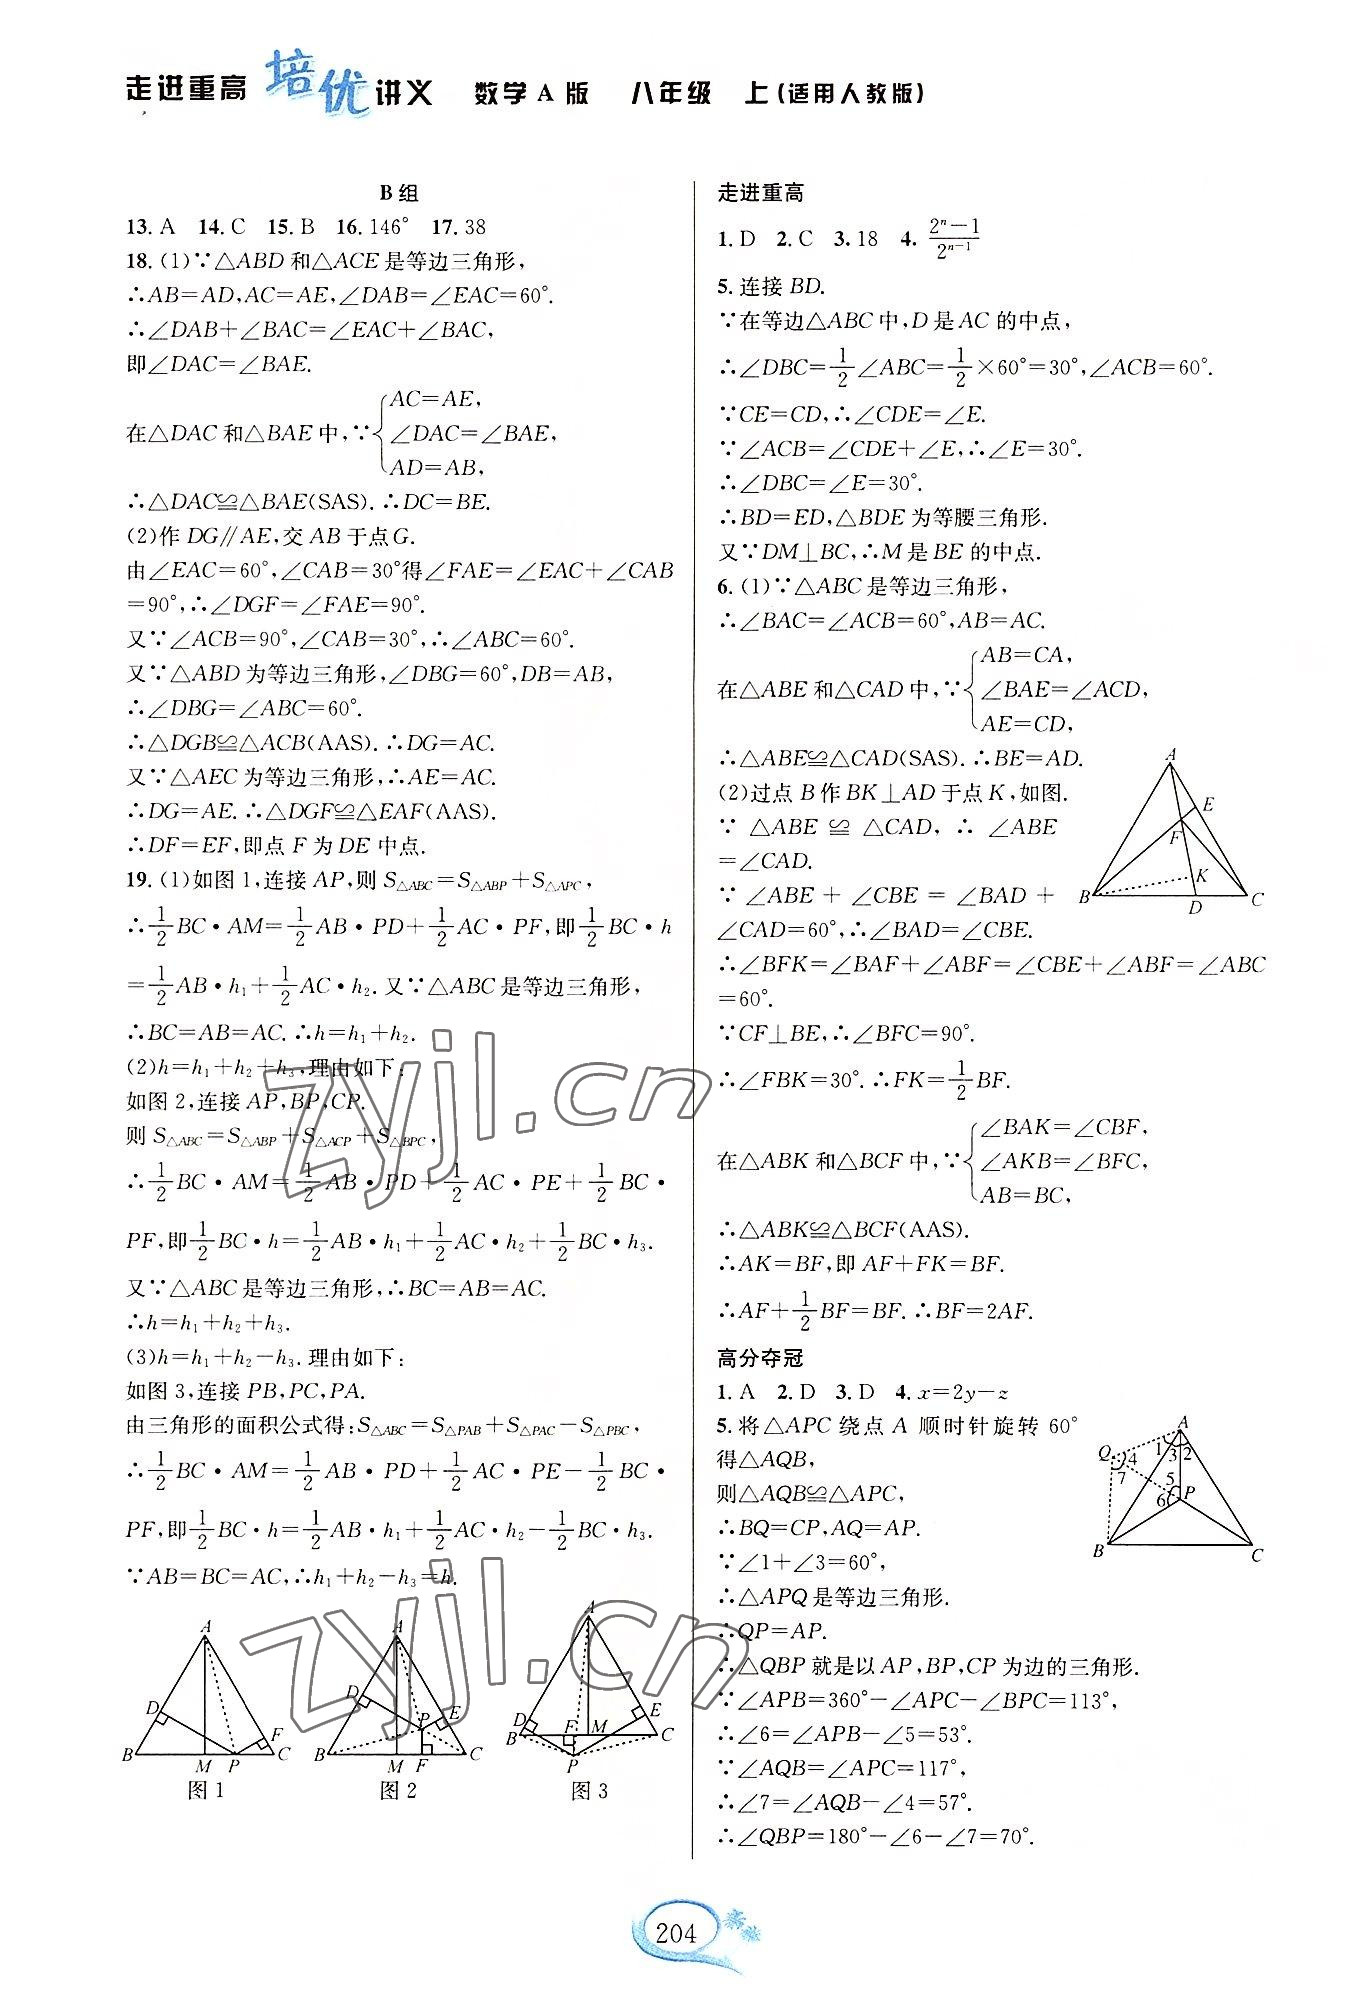 走进重高 培优讲义 数学A版 八年级 上(适用人教版)
B组
13. A 14. C 15. B 16. 146° 17. 38
18. (1)∵△ABD和△ACE是等边三角形,
∴AB=AD,AC=AE,∠DAB=∠EAC=60°.
∴∠DAB+∠BAC=∠EAC+∠BAC,
即∠DAC=∠BAE.
在△DAC和△BAE中,∵{AC=AE,
∠DAC=∠BAE,
AD=AB,
∴△DAC≌△BAE(SAS).∴DC=BE.
(2)作DG∥AE,交AB于点G.
由∠EAC=60°,∠CAB=30°得∠FAE=∠EAC+∠CAB
=90°,∴∠DGF=∠FAE=90°.
又∵∠ACB=90°,∠CAB=30°,∴∠ABC=60°.
又∵△ABD为等边三角形,∠DBG=60°,DB=AB,
∴∠DBG=∠ABC=60°.
∴△DGB≌△ACB(AAS).∴DG=AC.
又∵△AEC为等边三角形,∴AE=AC.
∴DG=AE.∴△DGF≌△EAF(AAS).
∴DF=EF,即点F为DE中点.
19. (1)如图1,连接AP,则S△ABC=S△ABP+S△APC,
∴1/2 BC·AM=1/2 AB·PD+1/2 AC·PF,即1/2 BC·h
=1/2 AB·h₁+1/2 AC·h₂.又∵△ABC是等边三角形,
∴BC=AB=AC.∴h=h₁+h₂.
(2)h=h₁+h₂+h₃,理由如下:
如图2,连接AP,BP,CP.
则S△ABC=S△ABP+S△ACP+S△BPC,
∴1/2 BC·AM=1/2 AB·PD+1/2 AC·PE+1/2 BC·
PF,即1/2 BC·h=1/2 AB·h₁+1/2 AC·h₂+1/2 BC·h₃.
又∵△ABC是等边三角形,∴BC=AB=AC.
∴h=h₁+h₂+h₃.
(3)h=h₁+h₂-h₃.理由如下:
如图3,连接PB,PC,PA.
由三角形的面积公式得:S△ABC=S△PAB+S△PAC-S△PBC,
∴1/2 BC·AM=1/2 AB·PD+1/2 AC·PE-1/2 BC·
PF,即1/2 BC·h=1/2 AB·h₁+1/2 AC·h₂-1/2 BC·h₃.
∵AB=BC=AC,∴h₁+h₂-h₃=h.
A D F B M P C
图1
A D P E B M F C
图2
A D F M E B C P
图3
走进重高
1. D 2. C 3. 18 4. (2ⁿ-1)/2ⁿ⁻¹
5. 连接BD.
∵在等边△ABC中,D是AC的中点,
∴∠DBC=1/2∠ABC=1/2×60°=30°,∠ACB=60°.
∵CE=CD,∴∠CDE=∠E.
∵∠ACB=∠CDE+∠E,∴∠E=30°.
∴∠DBC=∠E=30°.
∴BD=ED,△BDE为等腰三角形.
又∵DM⊥BC,∴M是BE的中点.
6. (1)∵△ABC是等边三角形,
∴∠BAC=∠ACB=60°,AB=AC.
在△ABE和△CAD中,∵{AB=CA,
∠BAE=∠ACD,
AE=CD,
∴△ABE≌△CAD(SAS).∴BE=AD.
(2)过点B作BK⊥AD于点K,如图.
∵△ABE≌△CAD,∴∠ABE
=∠CAD.
∵∠ABE+∠CBE=∠BAD+
∠CAD=60°,∴∠BAD=∠CBE.
∴∠BFK=∠BAF+∠ABF=∠CBE+∠ABF=∠ABC
=60°.
A E F K B D C
∵CF⊥BE,∴∠BFC=90°.
∴∠FBK=30°.∴FK=1/2 BF.
在△ABK和△BCF中,∵{∠BAK=∠CBF,
∠AKB=∠BFC,
AB=BC,
∴△ABK≌△BCF(AAS).
∴AK=BF,即AF+FK=BF.
∴AF+1/2 BF=BF.∴BF=2AF.
高分夺冠
1. A 2. D 3. D 4. x=2y-z
5. 将△APC绕点A顺时针旋转60°
得△AQB,
则△AQB≌△APC,
∴BQ=CP,AQ=AP.
∵∠1+∠3=60°,
∴△APQ是等边三角形.
∴QP=AP.
A 1 3 2 Q 4 7 5 6 P B C
∴△QBP就是以AP,BP,CP为边的三角形.
∵∠APB=360°-∠APC-∠BPC=113°,
∴∠6=∠APB-∠5=53°.
∵∠AQB=∠APC=117°,
∴∠7=∠AQB-∠4=57°.
∴∠QBP=180°-∠6-∠7=70°.
zyjl.cn
zyjl.cn
204